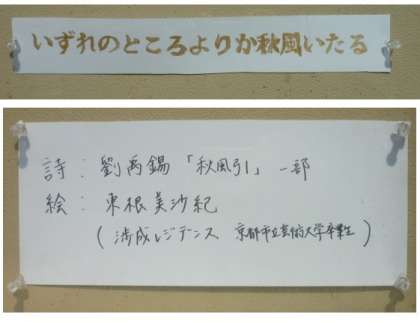 いずれのところよりか秋風いたる
詩：劉禹錫「秋風引」一部
絵：東根美沙紀
(渉成レジデンス 京都市立芸術大学卒業生)